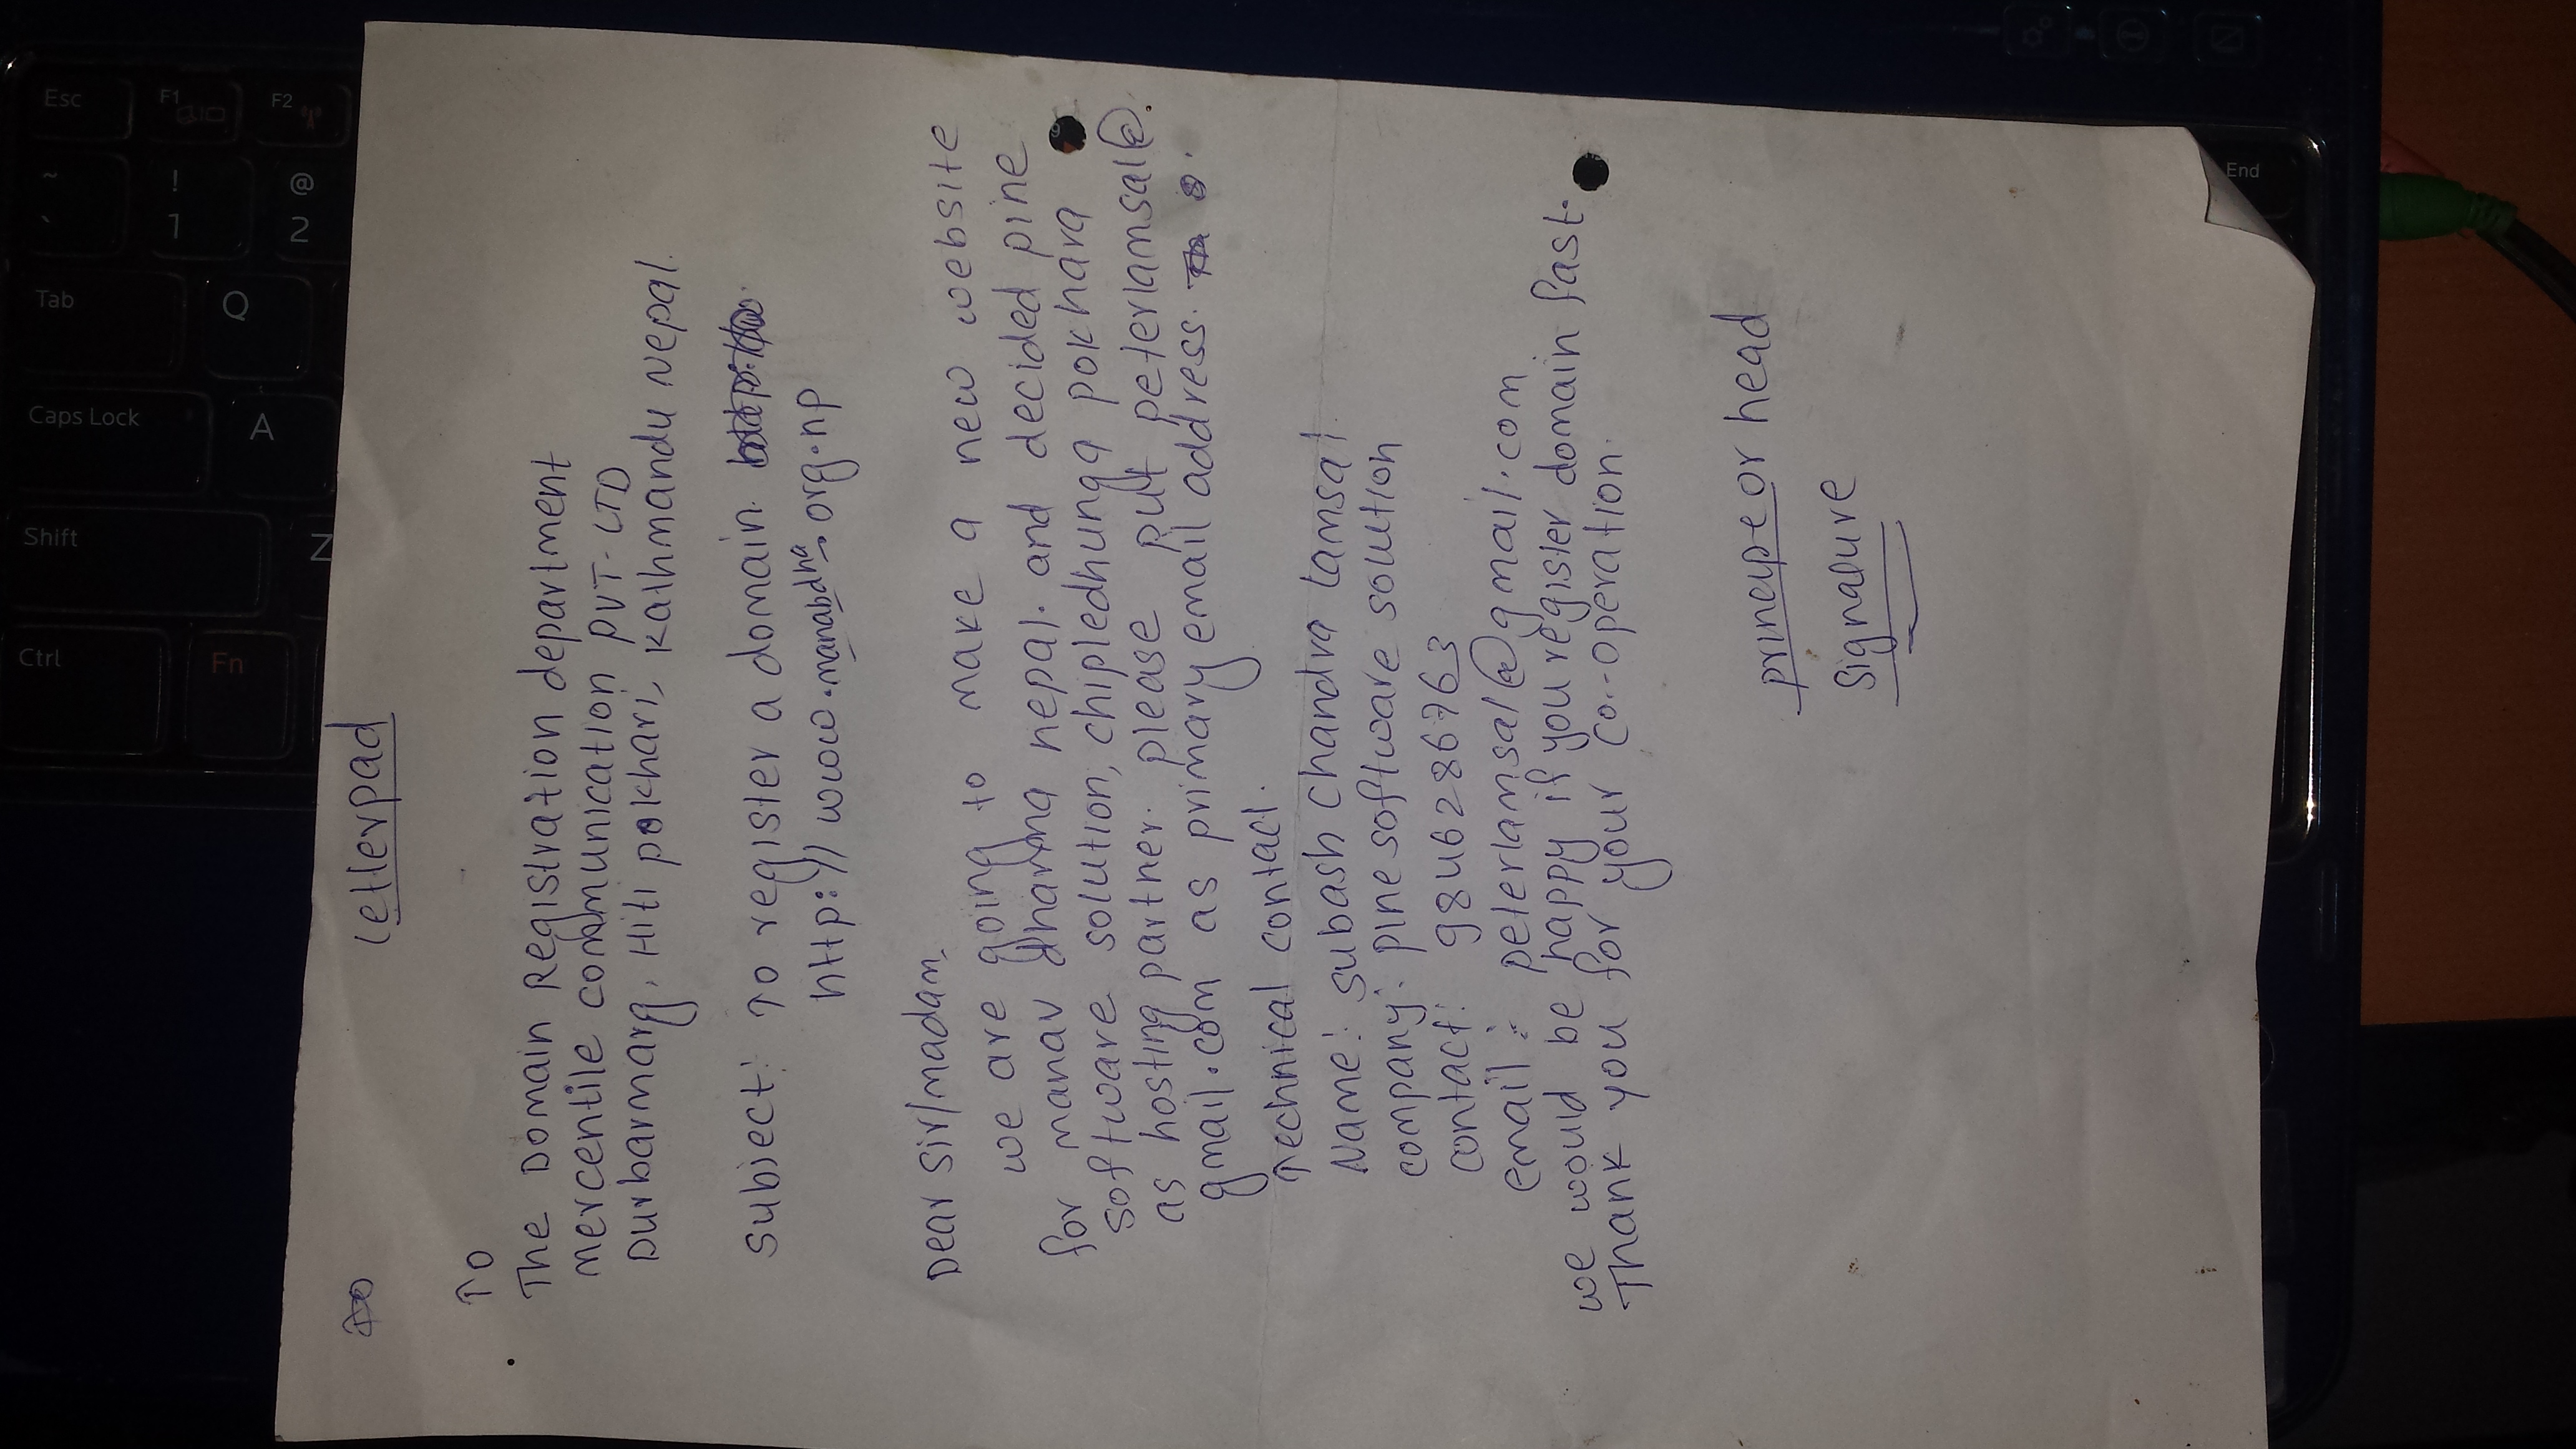 Esc
F1
F2
~
`
!
1
@
2
Tab
Q
Caps Lock
A
Shift
Z
Ctrl
Fn
Letterpad
To
The Domain Registration department
mercentile communication PVT. LTD
Durbarmarg, Hiti pokhari, Kathmandu Nepal.
Subject: To register a domain.
http://www.manabdha.org.np
Dear Sir/madam,
we are going to make a new website
for manav dharma nepal. and decided pine
software solution, chipledhunga pokhara
as hosting partner. please put peterlamsal@
gmail.com as primary email address.
Technical contact.
Name: subash Chandra Lamsal.
company: pine software solution
contact: 9846286763
email: peterlamsal@gmail.com
we would be happy if you register domain fast.
Thank you for your co-operation.
principe or head
Signature
End